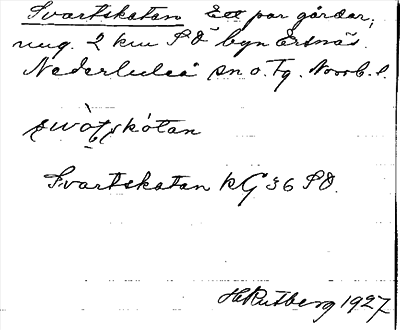 Svartskatan Ett par gårdar,
ung. 2 km SÖ byn Ersnäs.
Nederluleå sn o. Tg. Norrb. l.
Svartskatan kG 36 SÖ.
HRutberg 1927